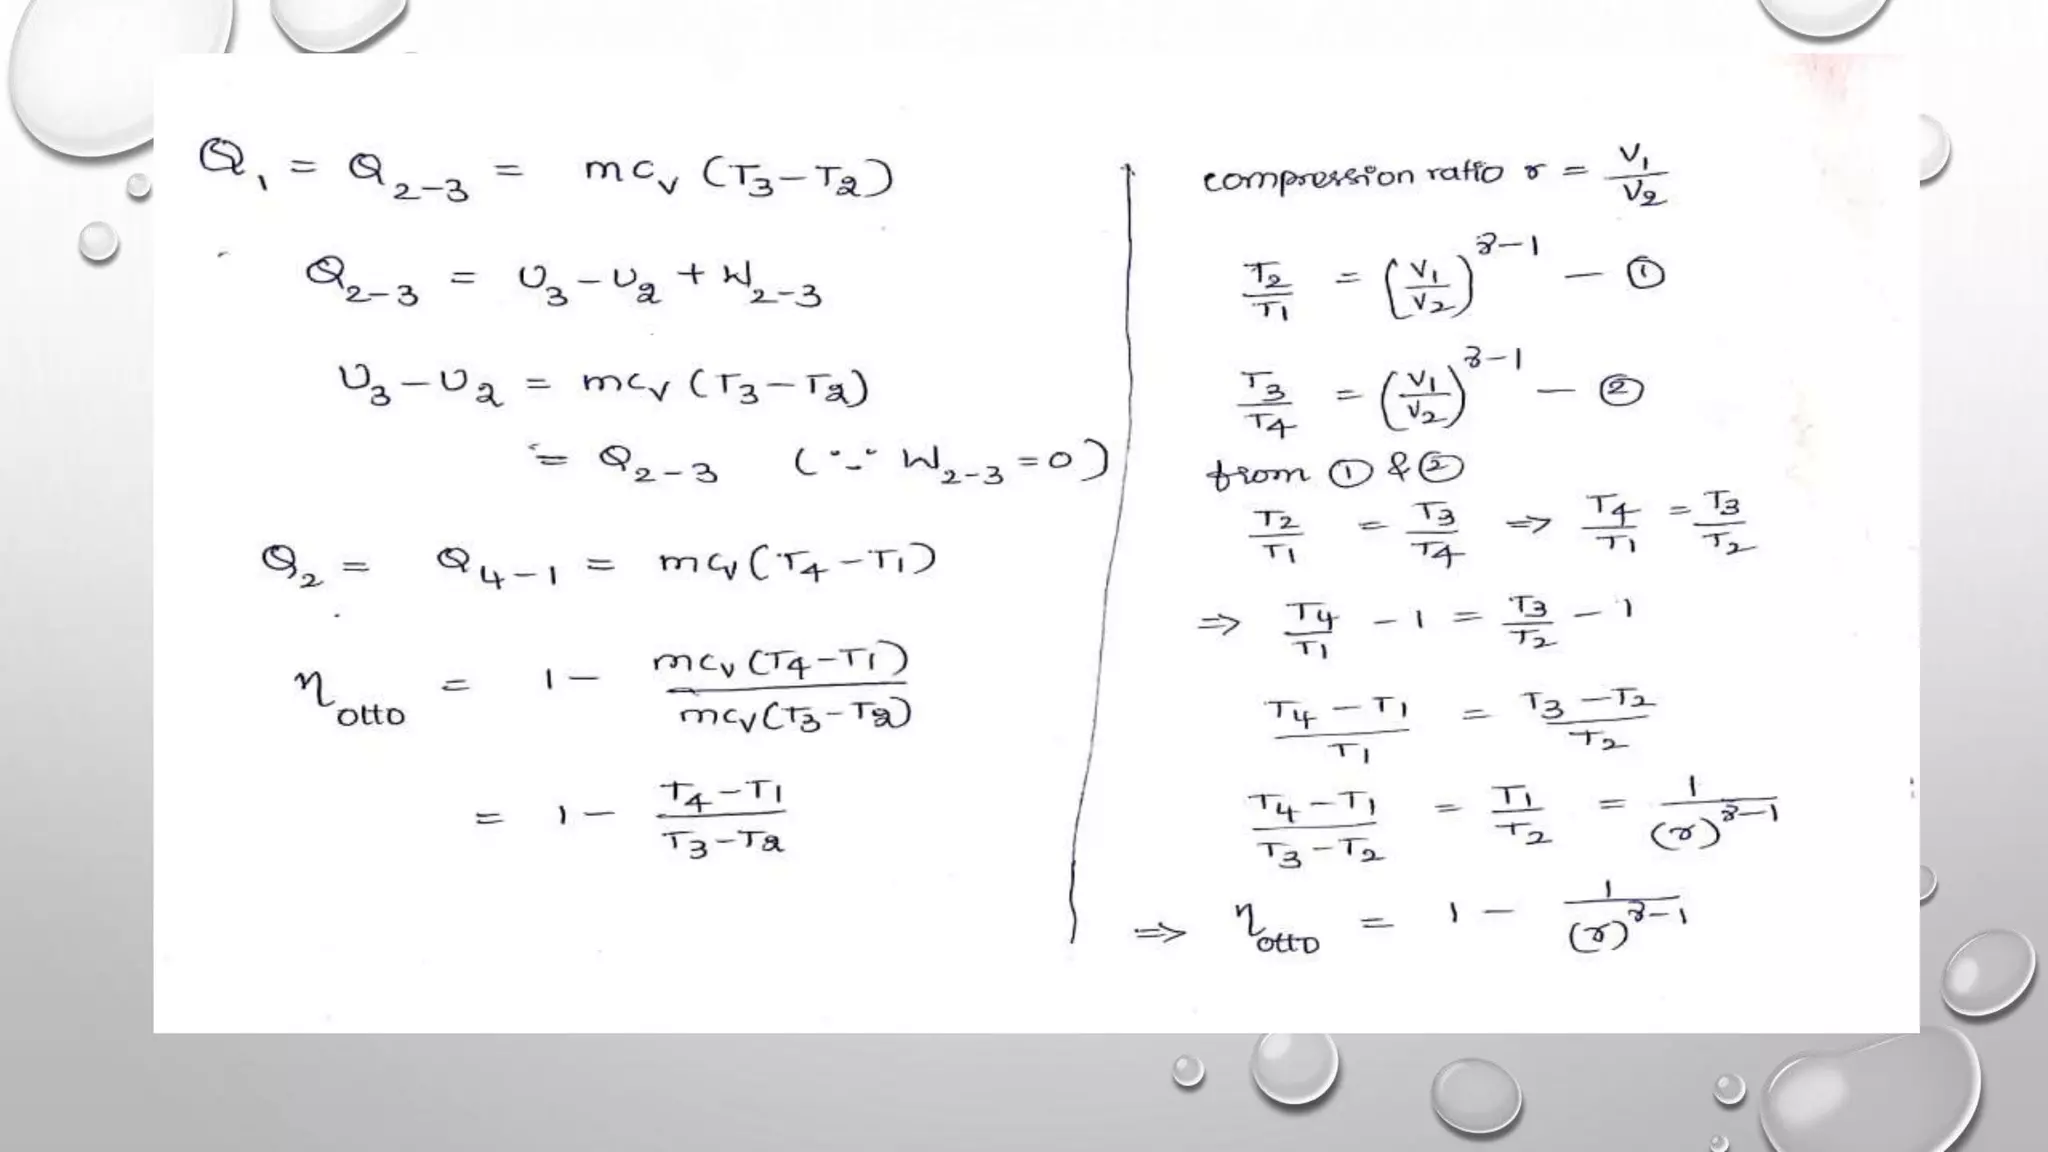 Q₁ = Q₂₋₃ = mcᵥ (T₃ – T₂)
Q₂₋₃ = U₃ – U₂ + W₂₋₃
U₃ – U₂ = mcᵥ (T₃ – T₂)
= Q₂₋₃ (∵ W₂₋₃ = 0)
Q₂ = Q₄₋₁ = mcᵥ (T₄ – T₁)
η_otto = 1 – mcᵥ (T₄ – T₁) / mcᵥ (T₃ – T₂)
= 1 – (T₄ – T₁) / (T₃ – T₂)
compression ratio r = V₁ / V₂
T₂ / T₁ = (V₁ / V₂)^(γ–1) — ①
T₃ / T₄ = (V₁ / V₂)^(γ–1) — ②
from ① & ②
T₂ / T₁ = T₃ / T₄ ⇒ T₄ / T₁ = T₃ / T₂
⇒ T₄ / T₁ – 1 = T₃ / T₂ – 1
(T₄ – T₁) / T₁ = (T₃ – T₂) / T₂
(T₄ – T₁) / (T₃ – T₂) = T₁ / T₂ = 1 / (r)^(γ–1)
⇒ η_otto = 1 – 1 / (r)^(γ–1)